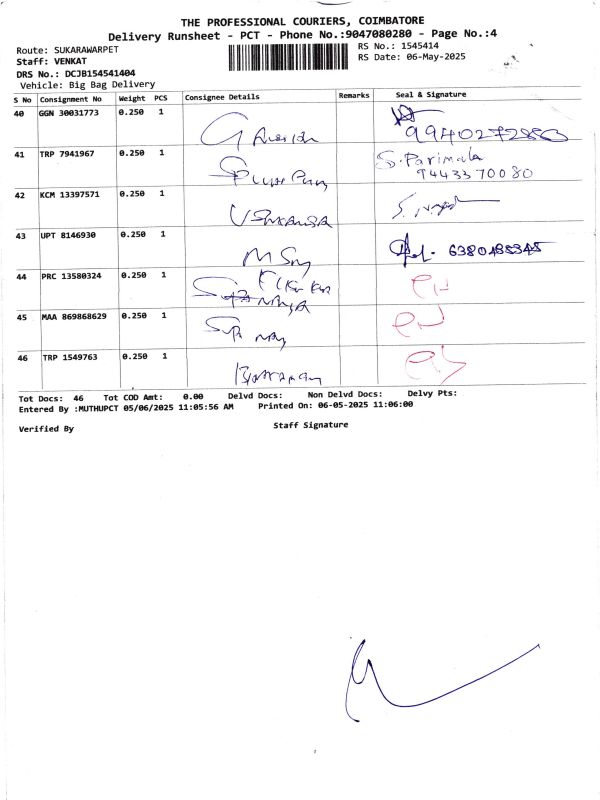 THE PROFESSIONAL COURIERS, COIMBATORE
Delivery Runsheet - PCT - Phone No.:9047080280 - Page No.:4
Route: SUKARAWARPET
RS No.: 1545414
Staff: VENKAT
RS Date: 06-May-2025
DRS No.: DCJB154541404
Vehicle: Big Bag Delivery
S No Consignment No Weight PCS Consignee Details Remarks Seal & Signature
40 GGN 30031773 0.250 1
41 TRP 7941967 0.250 1 S. Parimala
9443370080
42 KCM 13397571 0.250 1
43 UPT 8146930 0.250 1
44 PRC 13580324 0.250 1
45 MAA 869868629 0.250 1
46 TRP 1549763 0.250 1
Tot Docs: 46 Tot COD Amt: 0.00 Delvd Docs: Non Delvd Docs: Delvy Pts:
Entered By :MUTHUPCT 05/06/2025 11:05:56 AM Printed On: 06-05-2025 11:06:00
Verified By Staff Signature